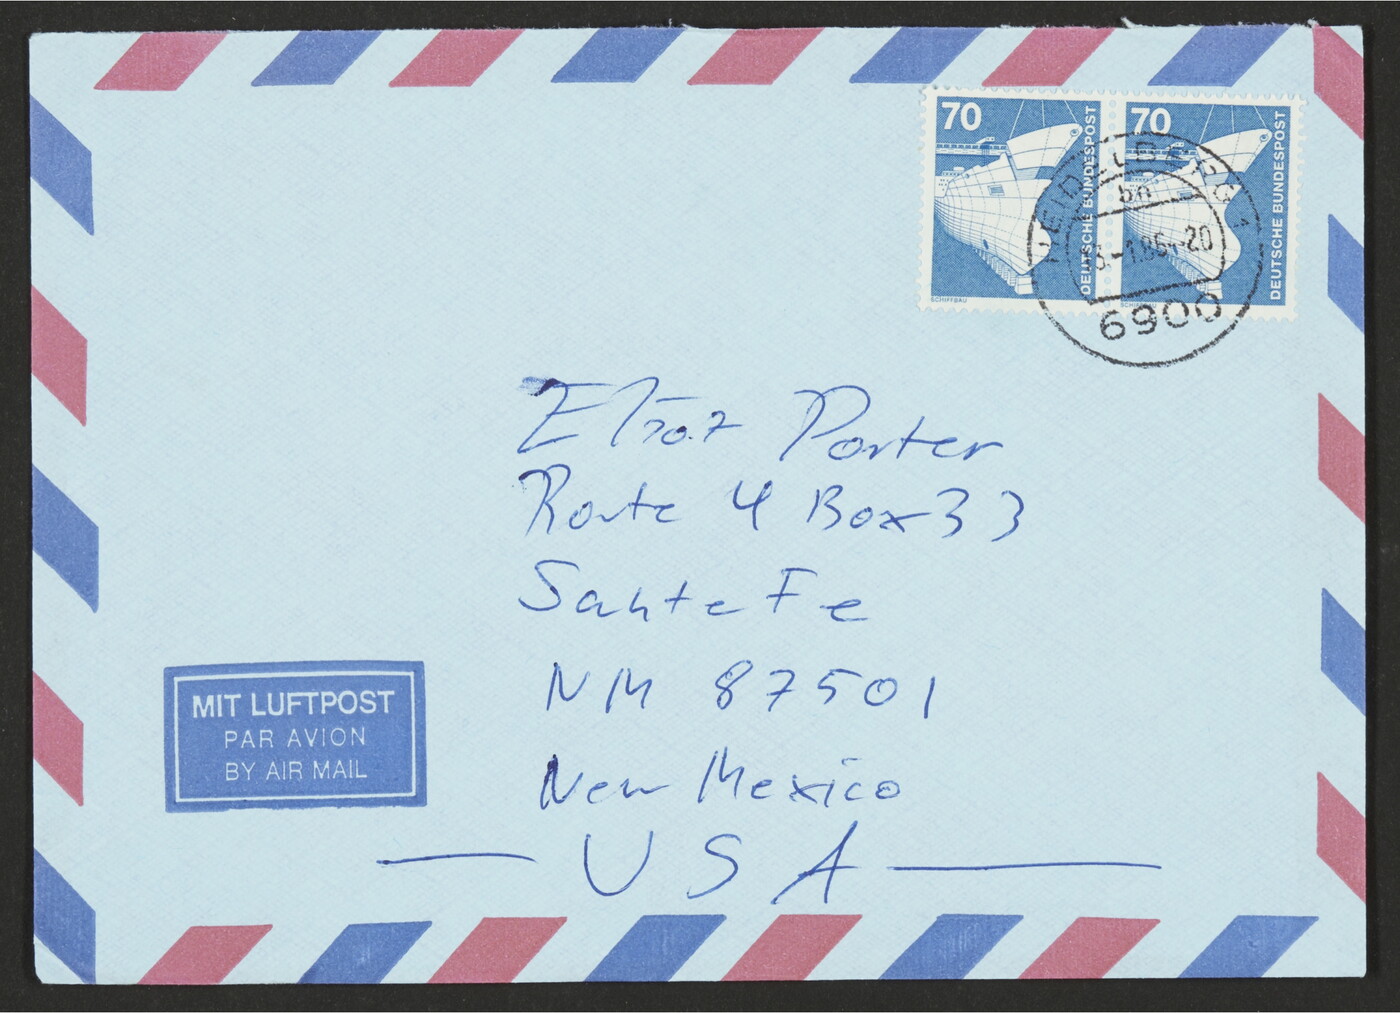 70
DEUTSCHE BUNDESPOST
SCHIFFBAU
70
DEUTSCHE BUNDESPOST
HEIDELBERG 1
bn
-1.86-20
6900
Eliot Porter
Route 4 Box 33
Santa Fe
NM 87501
New Mexico
USA
MIT LUFTPOST
PAR AVION
BY AIR MAIL